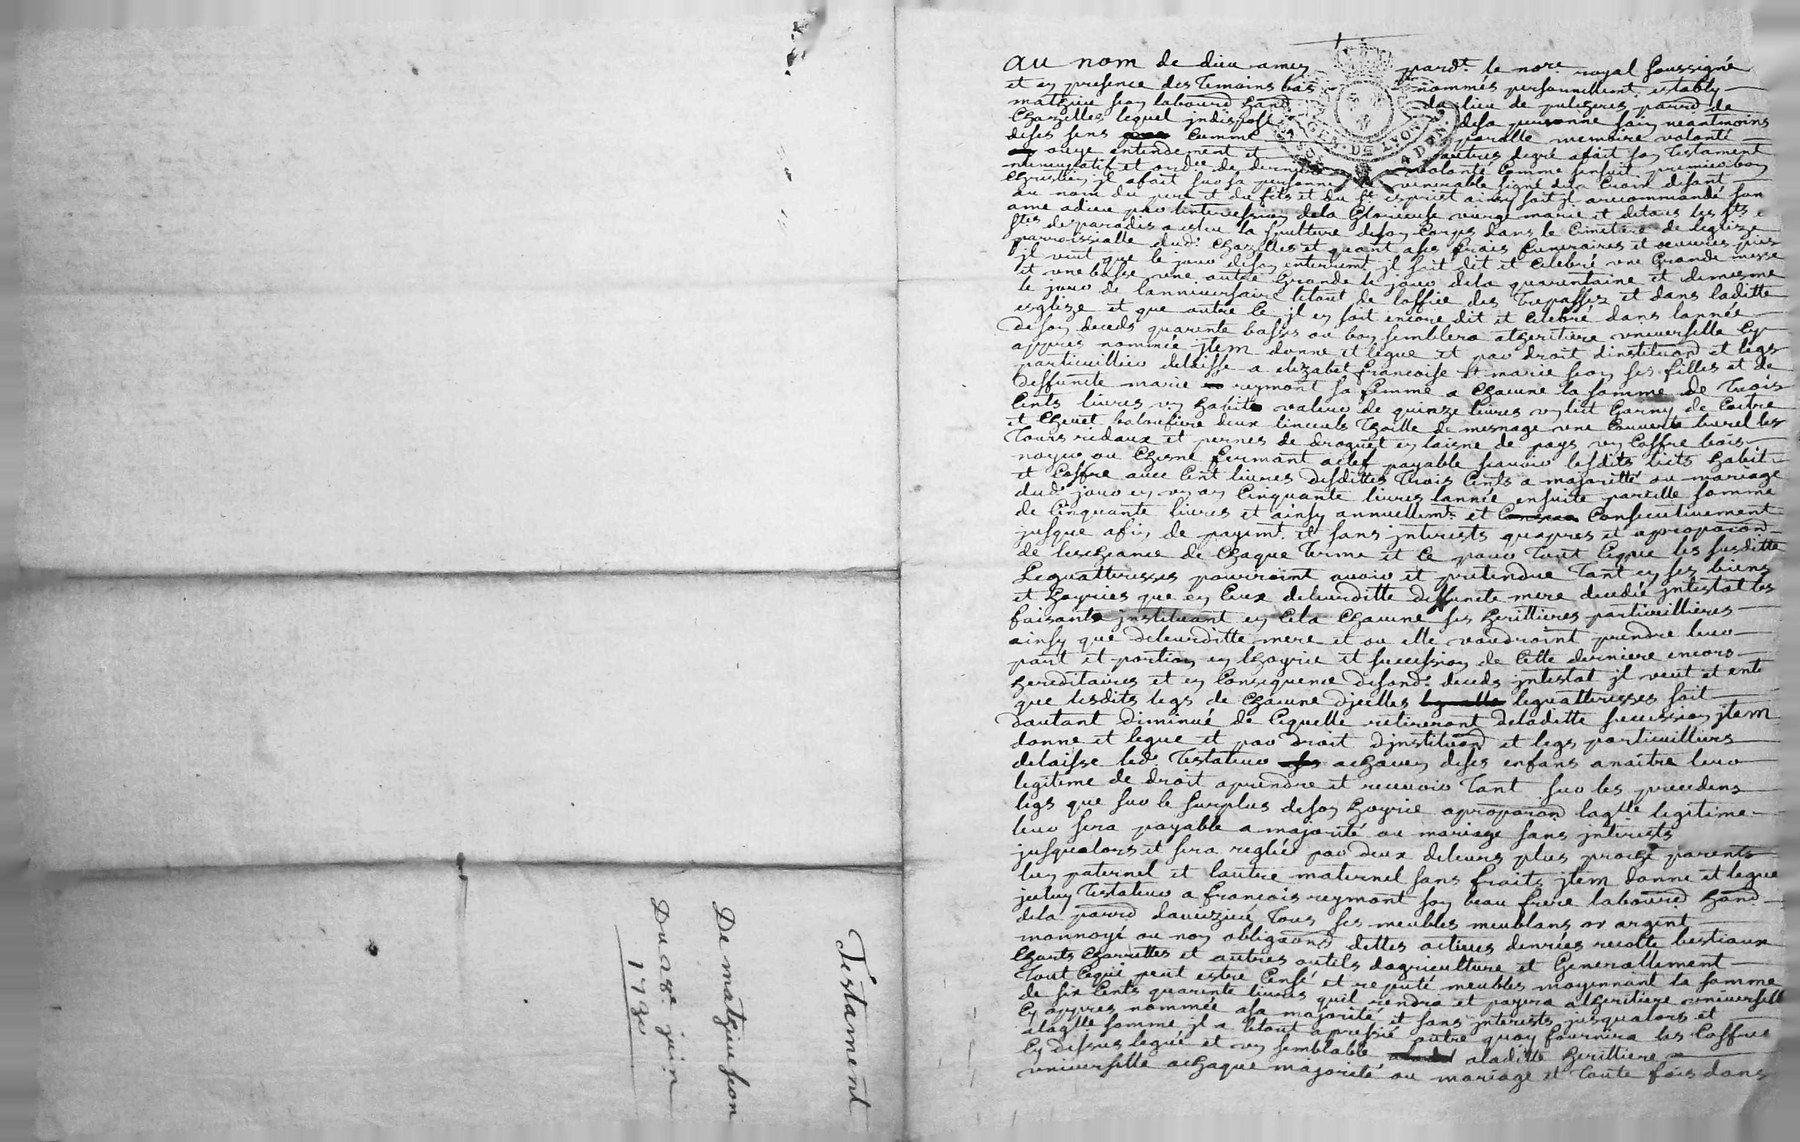 Testament
De mathieu seon
Du 29e juin
1730
au nom de dieu amen pardt. le nore. royal soussigné
et en presence des temoins bas nommés personnellement estably
mathieu seon laboureur hand du lieu de puligeres parrd de
Chazelles lequel jndispost desa personne sain neantmoins
deses sens comme parolle memoire volonté
ouye entendement et autres degré afait son testament
nuncupatif et ordce de derniere volonté comme sensuit premier bon
Chrestien il afait sur sa personne venerable signe dela Croix disant
au nom du pere et du fils et du st esprict ainsy soit il arecommandé son
ame adieu par lintercession dela Glorieuse vierge marie et detous les sts e
stes de paradis aesleu la sepulture deson Corps dans le Cimitiere de leglize
parroissialle dudt Chazelles et quant ases frais funeraires et oeuvres pies
il veut que le jour deson enterrement il soit dit et celebré une Grande messe
et une basse une autre Grande le jour dela quarentaine et demesme
le jour de lanniversaire letout de loffice des trepassés et dans laditte
esglize et que outre ce il en soit encore dit et celebré dans lannée
deson deceds quarente basses ou bon semblera alheritiere universelle cy
appres nommée jtem donne et legue et par droit dinstituon et legs
particuillier delaisse a elizabet francoise et marie seon ses filles et de
deffuncte marie reymont sa femme a chacune la somme de trois
cents livres un habit valeur de quinze livres un lict Garny de coitre
et chevet balouffiere deux linceuls thoille de mesnage une couverte turel les
tours ridaux et pernes de droguet en laisne de pays un coffre bois
noyer ou chesne fermant aclef payable scavoir lesdits licts habit
et coffre avec cent livres desdittes trois cents a majoritté ou mariage
dudt jour en un an cinquante livres lannée ensuite pareille somme
de cinquante livres et ainsy annuellemt. et consecutivement
jusque afin de payemt. et sans interests quapres et aproporaon
de lescheance de chaque terme et ce pour tout ceque les susditte
Leguatteresses pourroint avoir et pretendre tant en ses biens
et hoyries que en ceux deleurditte deffuncte mere decedée jntestat les
faisants jnstituant en cela chacune ses heritieres particuillieres
ainsy que deleurditte mere et ou elle voudroint prendre leur
part et portion en lhoyrie et succession de cette derniere encors
hereditaires et en consequence desond. deceds jntestat jl veut et ente
que lesdits legs de chacune djcelles leguatteresses soit
dautant diminué de cequelle retireront deladitte succession jtem
donne et legue et par droit djnstituon et legs particuilliers
delaisse led. testateur achacun deses enfans anaitre leur
legitime de droit aprendre et recevoir tant sur les precedens
legs que sur le surplus deson hoyrie aproporaon laqlle legitime
leur sera payable a majorité ou mariage sans jnterests
jusqualors et sera reglée par deux deleurs plus proche parents
lun paternel et lautre maternel sans fraits jtem donne et legue
jceluy testateur a francois reymont son beau frere laboureur hand
dela parrd daveizieu tous ses meubles meublans or argent
monnoyé ou non obligaons dettes actives denrées recolte bestiaux
charts charrettes et autres outils dagriculture et Generallement
tout cequi peut estre censé et reputé meubles moyennant la somme
de six cents quarente livres quil rendra et payera alheritiere universelle
cy appres nommée asa majorité et sans jnterests jusqualors et
alaqlle somme jl a letout apressié outre quoy fournira les coffre
cy dessus legué et un semblable aladitte herittiere
universelle achaque majorité ou mariage et toute fois dans